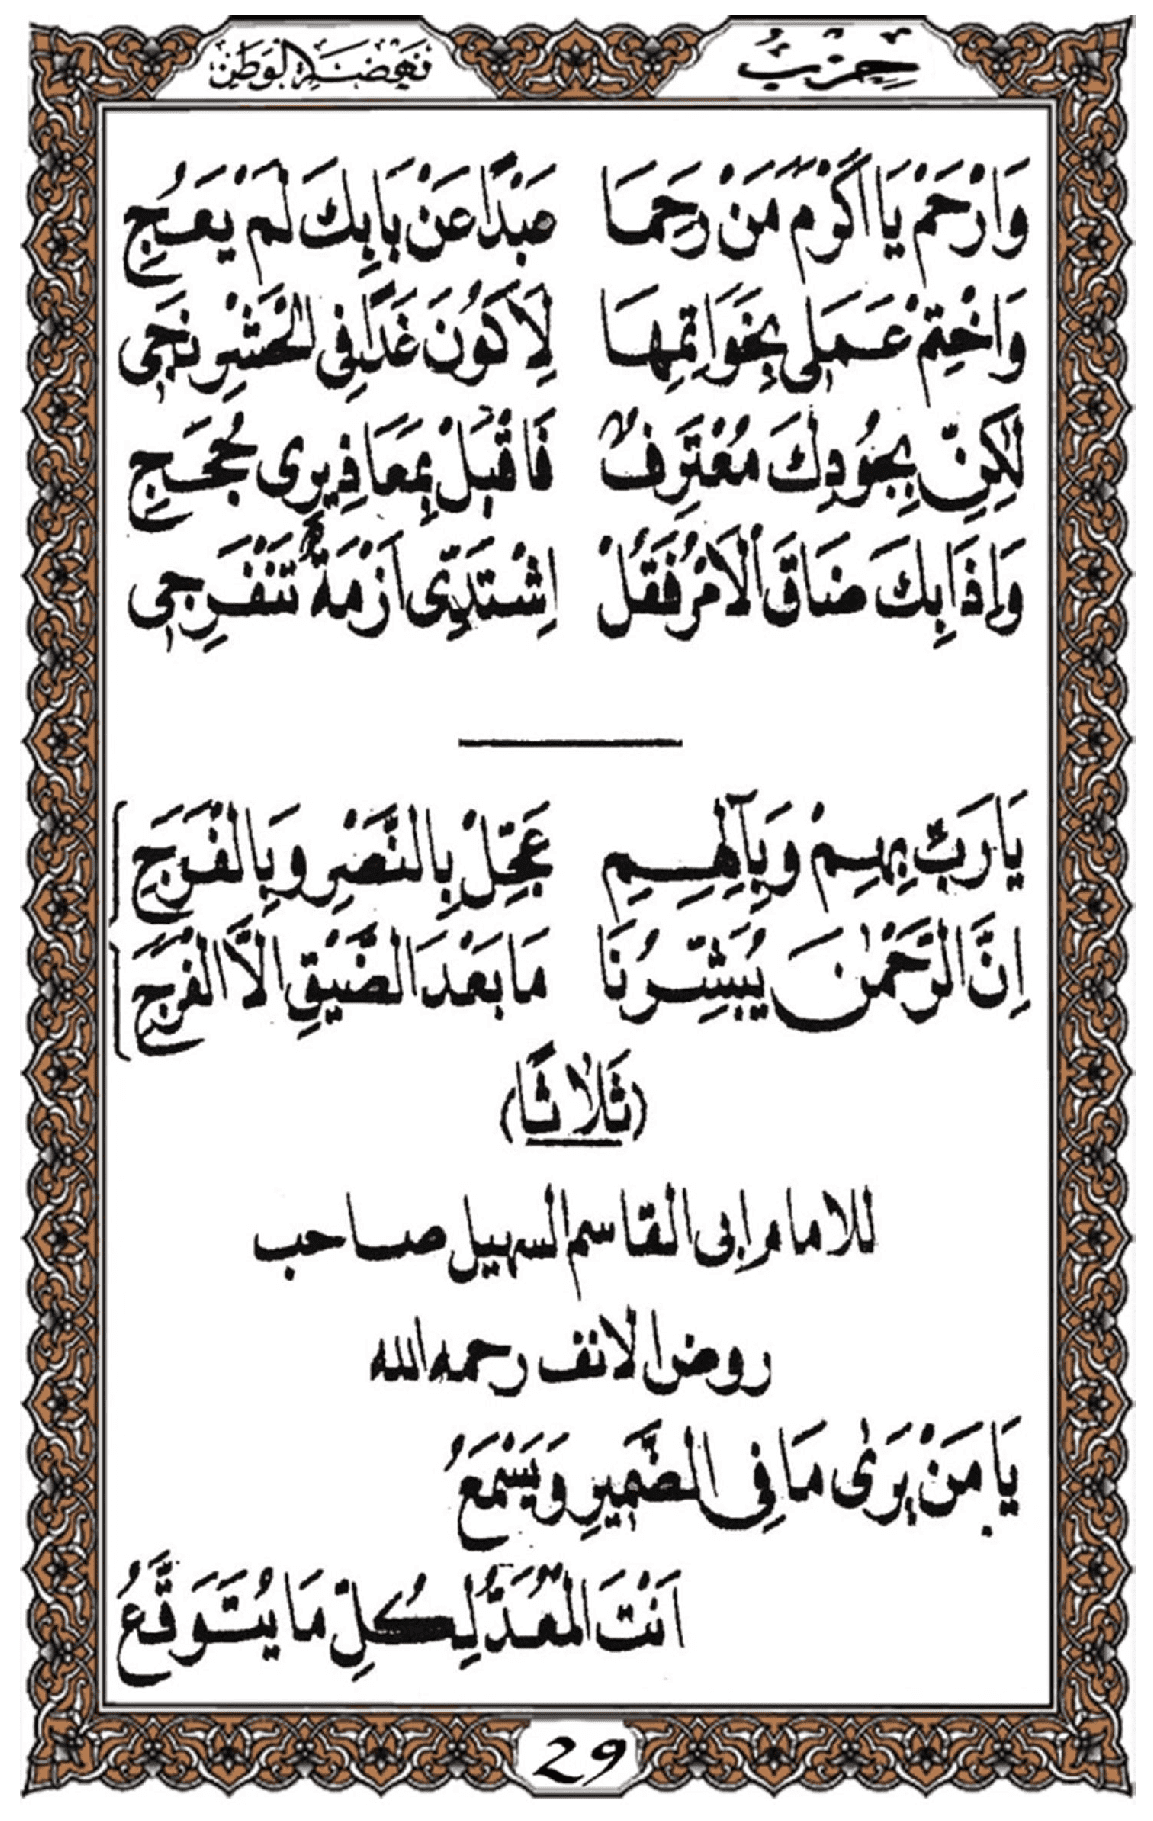 حِزْبُ نَهْضَةِ الْوَطَنْ
وَارْحَمْ يَا اَكْرَمَ مَنْ رَحِمَا عَبْدًا عَنْ بَابِكَ لَمْ يَعُجِ
وَاخْتِمْ عَمَلِى بِخَوَاتِمِهَا لِاَكُوْنَ غَدًا فِى الْحَشْرِ نَجِى
لٰكِنِّ بِجُوْدِكَ مُعْتَرِفٌ فَاقْبَلْ بِمَعَاذِيرِى حُجَجِ
وَاِذَا بِكَ ضَاقَ الْاَمْرُ فَقُلْ اِشْتَدِّى اَزْمَةُ تَنْفَرِجِى
يَا رَبِّ بِهِمْ وَبِآلِهِمِ عَجِّلْ بِالنَّصْرِ وَبِالْفَرَجِ
اِنَّ الرَّحْمٰنَ يُبَشِّرُنَا مَا بَعْدَ الضَّيْقِ اِلَّا الْفَرَجِ
(ثَلَاثًا)
للامام ابى القاسم السهيل صاحب
روض الانف رحمه الله
يَا مَنْ يَرٰى مَا فِى الضَّمِيرِ وَيَسْمَعُ
اَنْتَ الْمُعَدُّ لِكُلِّ مَا يُتَوَقَّعُ
29